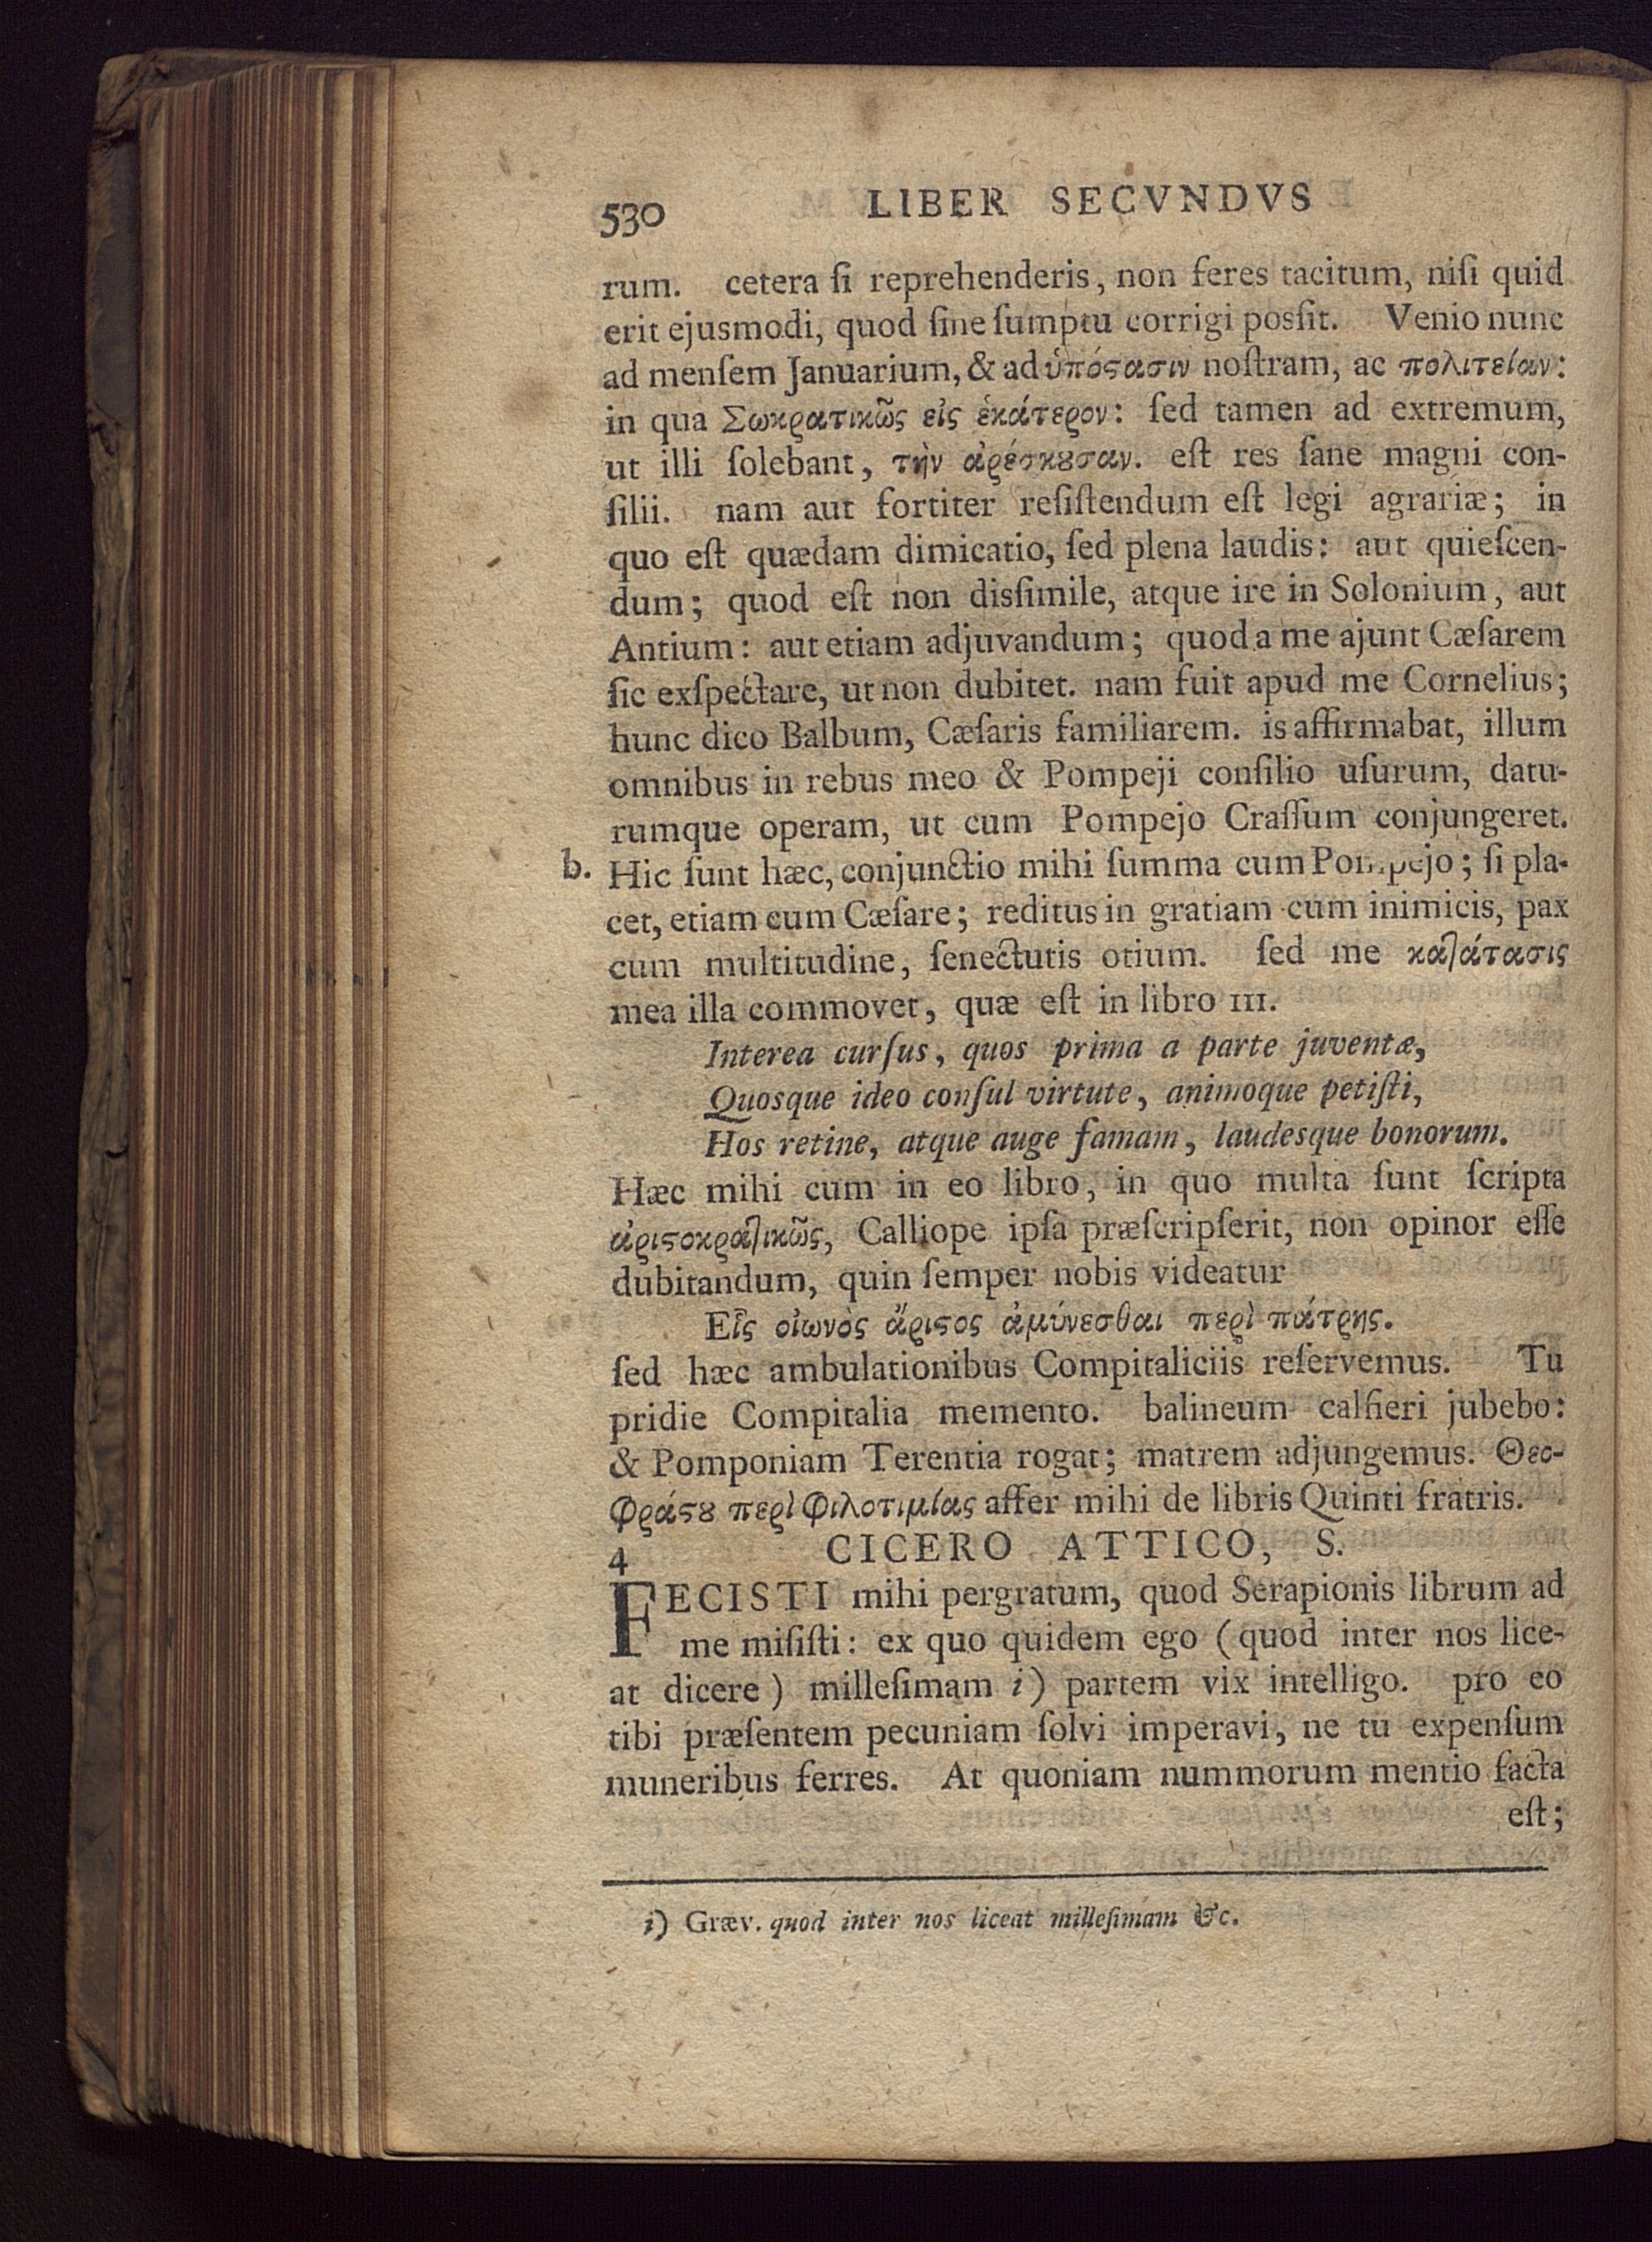 530 LIBER SECVNDVS
rum. cetera ſi reprehenderis, non feres tacitum, niſi quid
erit ejusmodi, quod ſine ſumptu corrigi posſit. Venio nunc
ad menſem Januarium, & ad ὑπόϛασιν noſtram, ac πολιτείαν:
in qua Σωκρατικῶς εἰς ἑκάτερον: ſed tamen ad extremum,
ut illi ſolebant, τὴν ἀρέσκȣσαν. eſt res ſane magni con-
ſilii. nam aut fortiter reſiſtendum eſt legi agrariæ; in
quo eſt quædam dimicatio, ſed plena laudis: aut quieſcen-
dum; quod eſt non disſimile, atque ire in Solonium, aut
Antium: aut etiam adjuvandum; quod a me ajunt Cæſarem
ſic exſpectare, ut non dubitet. nam fuit apud me Cornelius;
hunc dico Balbum, Cæſaris familiarem. is affirmabat, illum
omnibus in rebus meo & Pompeji conſilio uſurum, datu-
rumque operam, ut cum Pompejo Craſſum conjungeret.
b. Hic ſunt hæc, conjunctio mihi ſumma cum Pompejo; ſi pla-
cet, etiam cum Cæſare; reditus in gratiam cum inimicis, pax
cum multitudine, ſenectutis otium. ſed me καϯάτασις
mea illa commovet, quæ eſt in libro III.
Interea curſus, quos prima a parte juventæ,
Quosque ideo conſul virtute, animoque petiſti,
Hos retine, atque auge famam, laudesque bonorum.
Hæc mihi cum in eo libro, in quo multa ſunt ſcripta
ἀριϛοκρατικῶς, Calliope ipſa præſcripſerit, non opinor eſſe
dubitandum, quin ſemper nobis videatur
Εἷς οἰωνὸς ἄριϛος ἀμύνεσθαι περὶ πάτρης.
ſed hæc ambulationibus Compitaliciis reſervemus. Tu
pridie Compitalia memento. balineum calfieri jubebo:
& Pomponiam Terentia rogat; matrem adjungemus. Θεο-
φράϛȣ περὶ φιλοτιμίας affer mihi de libris Quinti fratris.
4 CICERO ATTICO, S.
FECISTI mihi pergratum, quod Serapionis librum ad
me miſiſti: ex quo quidem ego (quod inter nos lice-
at dicere) milleſimam i) partem vix intelligo. pro eo
tibi præſentem pecuniam ſolvi imperavi, ne tu expenſum
muneribus ferres. At quoniam nummorum mentio facta
eſt;
i) Græv. quod inter nos liceat milleſimam &c.